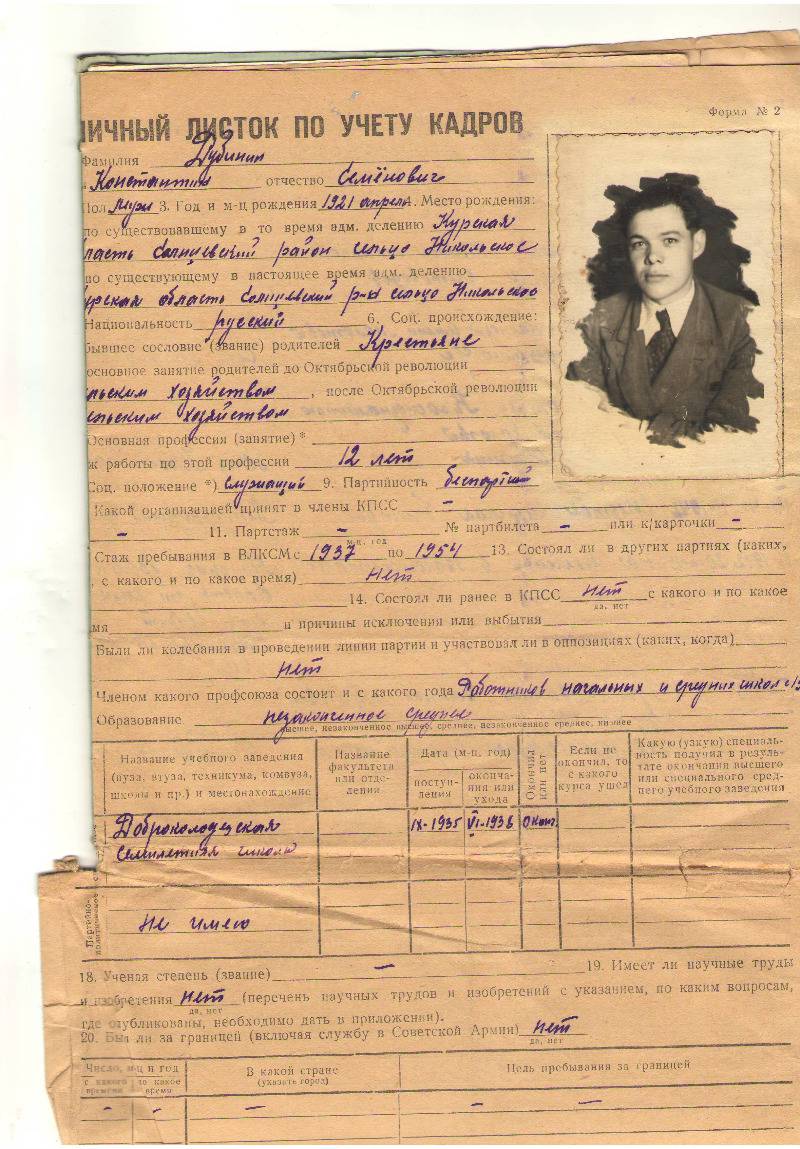 Форма № 2
ЛИЧНЫЙ ЛИСТОК ПО УЧЕТУ КАДРОВ
Фамилия Дубинин
Константин отчество Семёнович
Пол муж 3. Год и м-ц рождения 1921 апрель 4. Место рождения:
по существовавшему в то время адм. делению Курская
ласть Солнцевский район сельцо Никольское
по существующему в настоящее время адм. делению
урская область Солнцевский р-н сельцо Никольское
Национальность русский 6. Соц. происхождение:
бывшее сословие (звание) родителей Крестьяне
основное занятие родителей до Октябрьской революции
льским хозяйством, после Октябрьской революции
ельским хозяйством
Основная профессия (занятие) *
ж работы по этой профессии 12 лет
Соц. положение *) служащий 9. Партийность беспартий
Какой организацией принят в члены КПСС –
– 11. Партстаж – № партбилета – или к/карточки –
м-ц, год
Стаж пребывания в ВЛКСМ с 1937 по 1954 13. Состоял ли в других партиях (каких,
, с какого и по какое время) Нет
14. Состоял ли ранее в КПСС нет с какого и по какое
да, нет
мя и причины исключения или выбытия
Были ли колебания в проведении линии партии и участвовал ли в оппозициях (каких, когда)
нет
Членом какого профсоюза состоит и с какого года Работников начальных и средних школ с 19
Образование незаконченное среднее
высшее, незаконченное высшее, среднее, незаконченное среднее, низшее
Название учебного заведения (вуза, втуза, техникума, комвуза, школы и пр.) и местонахождение
Название факультета или отделения
Дата (м-ц, год)
поступ-
ления
оконча-
ния или
ухода
Окончил или нет
Если не окончил, то с какого курса ушел
Какую (узкую) специаль-
ность получил в резуль-
тате окончания высшего
или специального сред-
него учебного заведения
Доброколодезская IX-1935 VI-1938 Окон.
семилетняя школа
Партийно-
политическое
Не имею
18. Ученая степень (звание) – 19. Имеет ли научные труды
и изобретения нет (перечень научных трудов и изобретений с указанием, по каким вопросам,
да, нет
где опубликованы, необходимо дать в приложении).
20. Был ли за границей (включая службу в Советской Армии) нет
да, нет
Число, м-ц и год
с какого времени
по какое время
В какой стране
(указать город)
Цель пребывания за границей
– – – – –